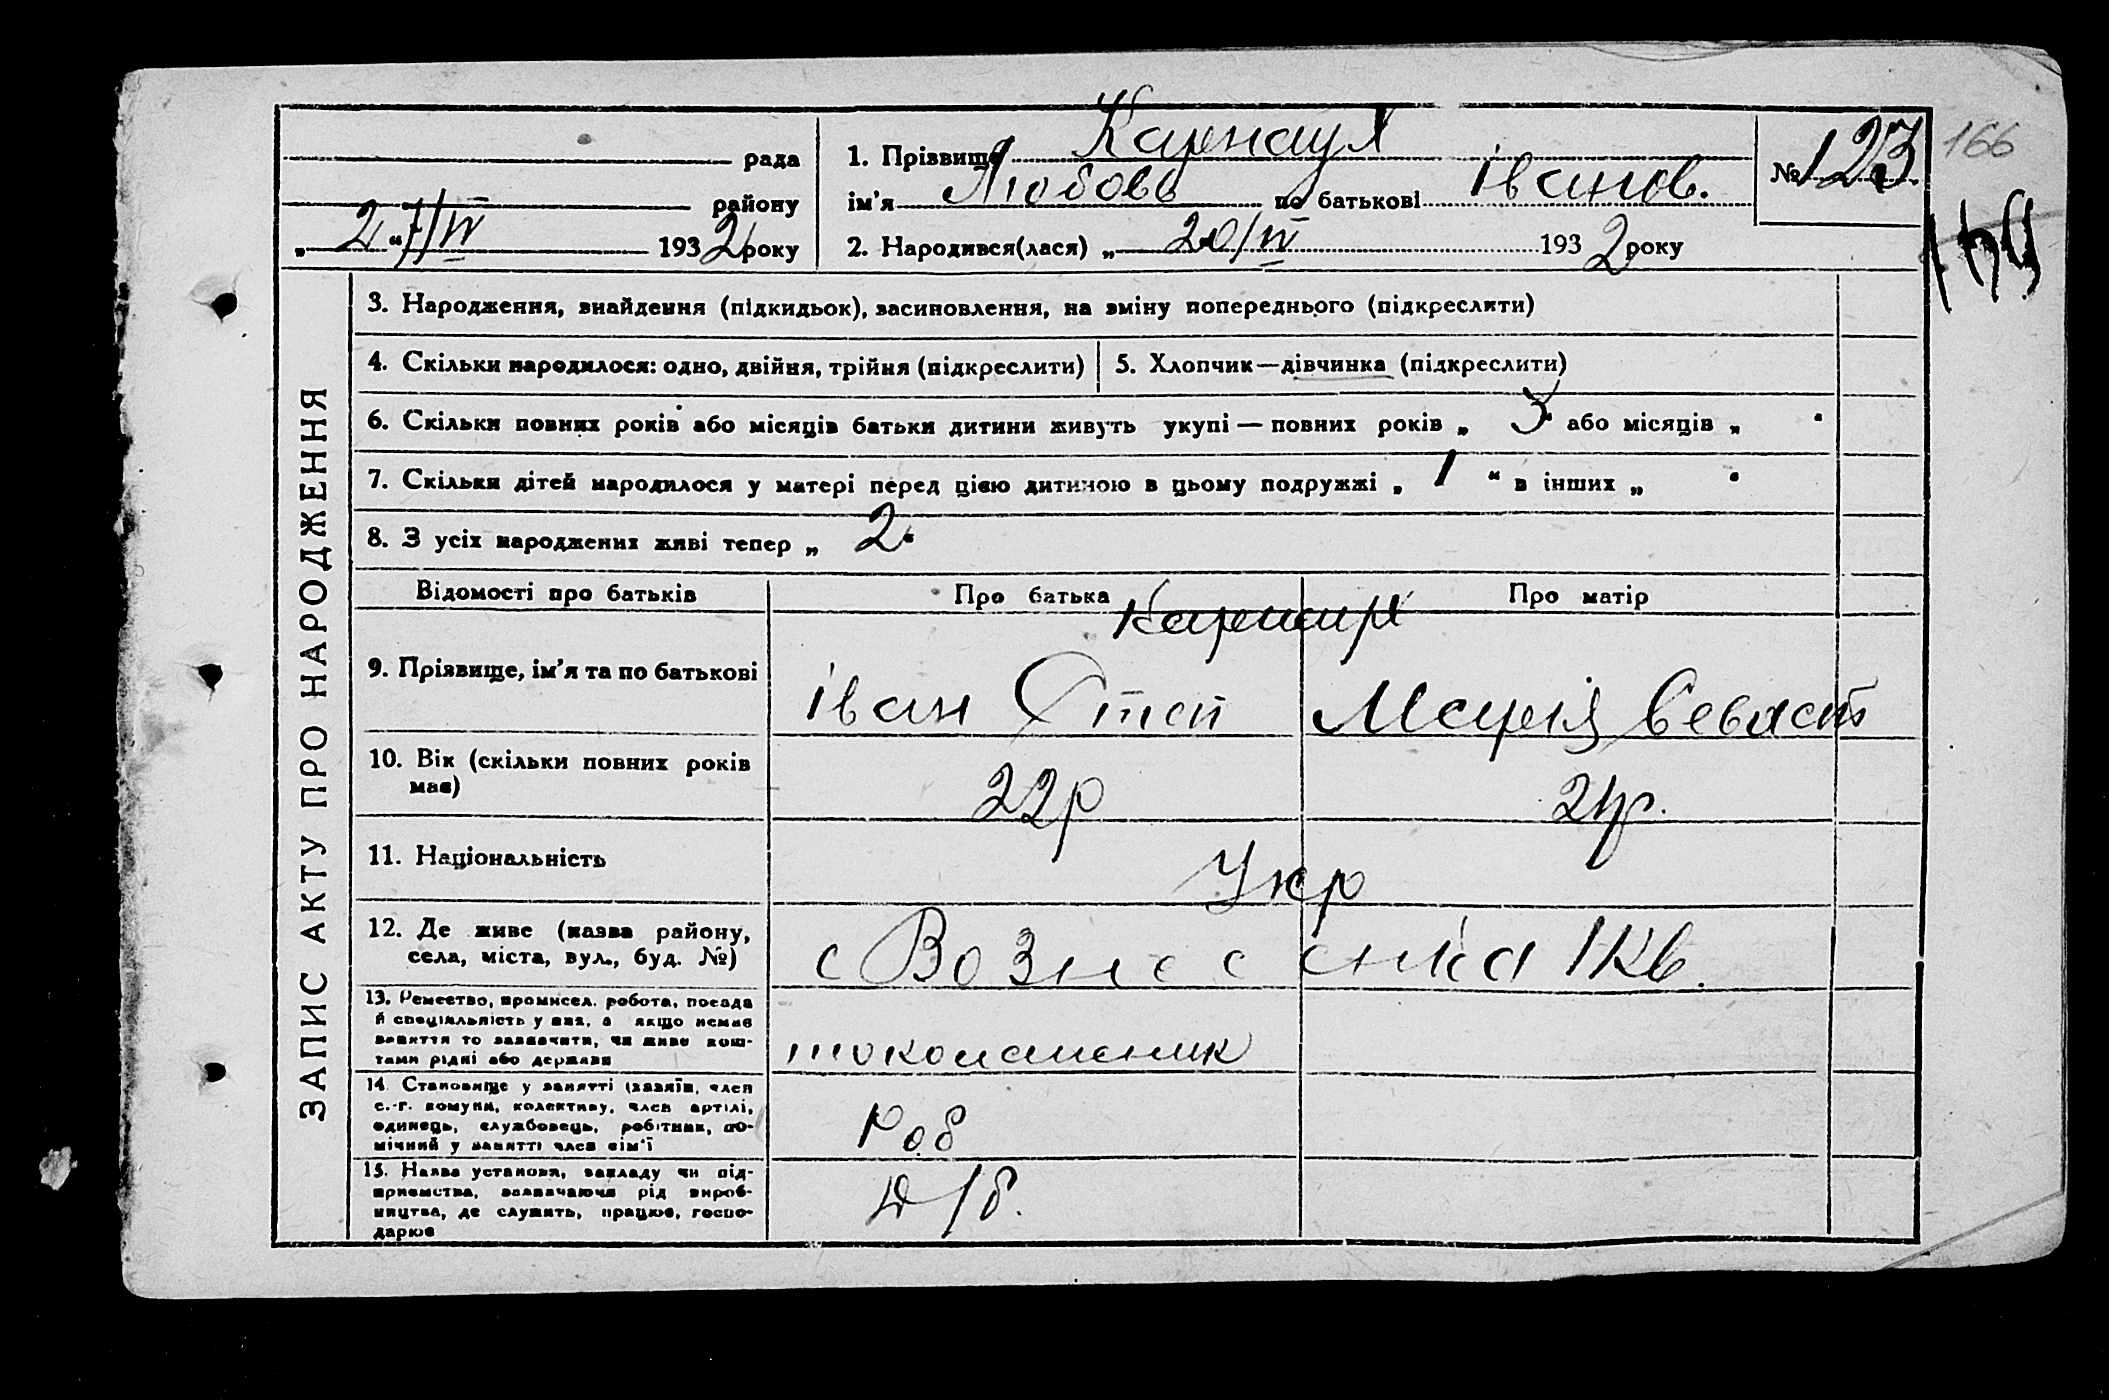 Карнаух
рада
1. Прізвище
№ 123
166
району
ім'я Любовь по батькові Іванов.
„ 27/IV 1932 року
2. Народився(лася) „ 20/IV 1932 року
ЗАПИС АКТУ ПРО НАРОДЖЕННЯ
3. Народження, знайдення (підкидьок), засиновлення, на зміну попереднього (підкреслити)
4. Скільки народилося: одно, двійня, трійня (підкреслити)
5. Хлопчик—дівчинка (підкреслити)
6. Скільки повних років або місяців батьки дитини живуть укупі — повних років „ 3 " або місяців „ "
7. Скільки дітей народилося у матері перед цією дитиною в цьому подружжі „ 1 " в інших „ "
8. З усіх народжених живі тепер „ 2 "
Відомості про батьків
Про батька
Про матір
Карнаух
9. Прізвище, ім'я та по батькові
Іван Степ
Марія Севаст
10. Вік (скільки повних років
має)
22р
24р.
11. Національність
Укр
12. Де живе (назва району,
села, міста, вул., буд. №)
с Вознесенка 1Кв.
13. Ремество, промисел. робота, посада
й спеціяльність у них, а якщо немає
заняття то зазначити, чи живе кош-
тами рідні або держави
14. Становище у занятті (хазяїн, член
с.-г. комуни, колективу, член артілі,
одинець, службовець, робітник, по-
мічний у занятті член сім'ї
Роб
15. Назва установи, закладу чи під-
приємства, зазначаючи рід вироб-
ництва, де служить, працює, госпо-
дарює